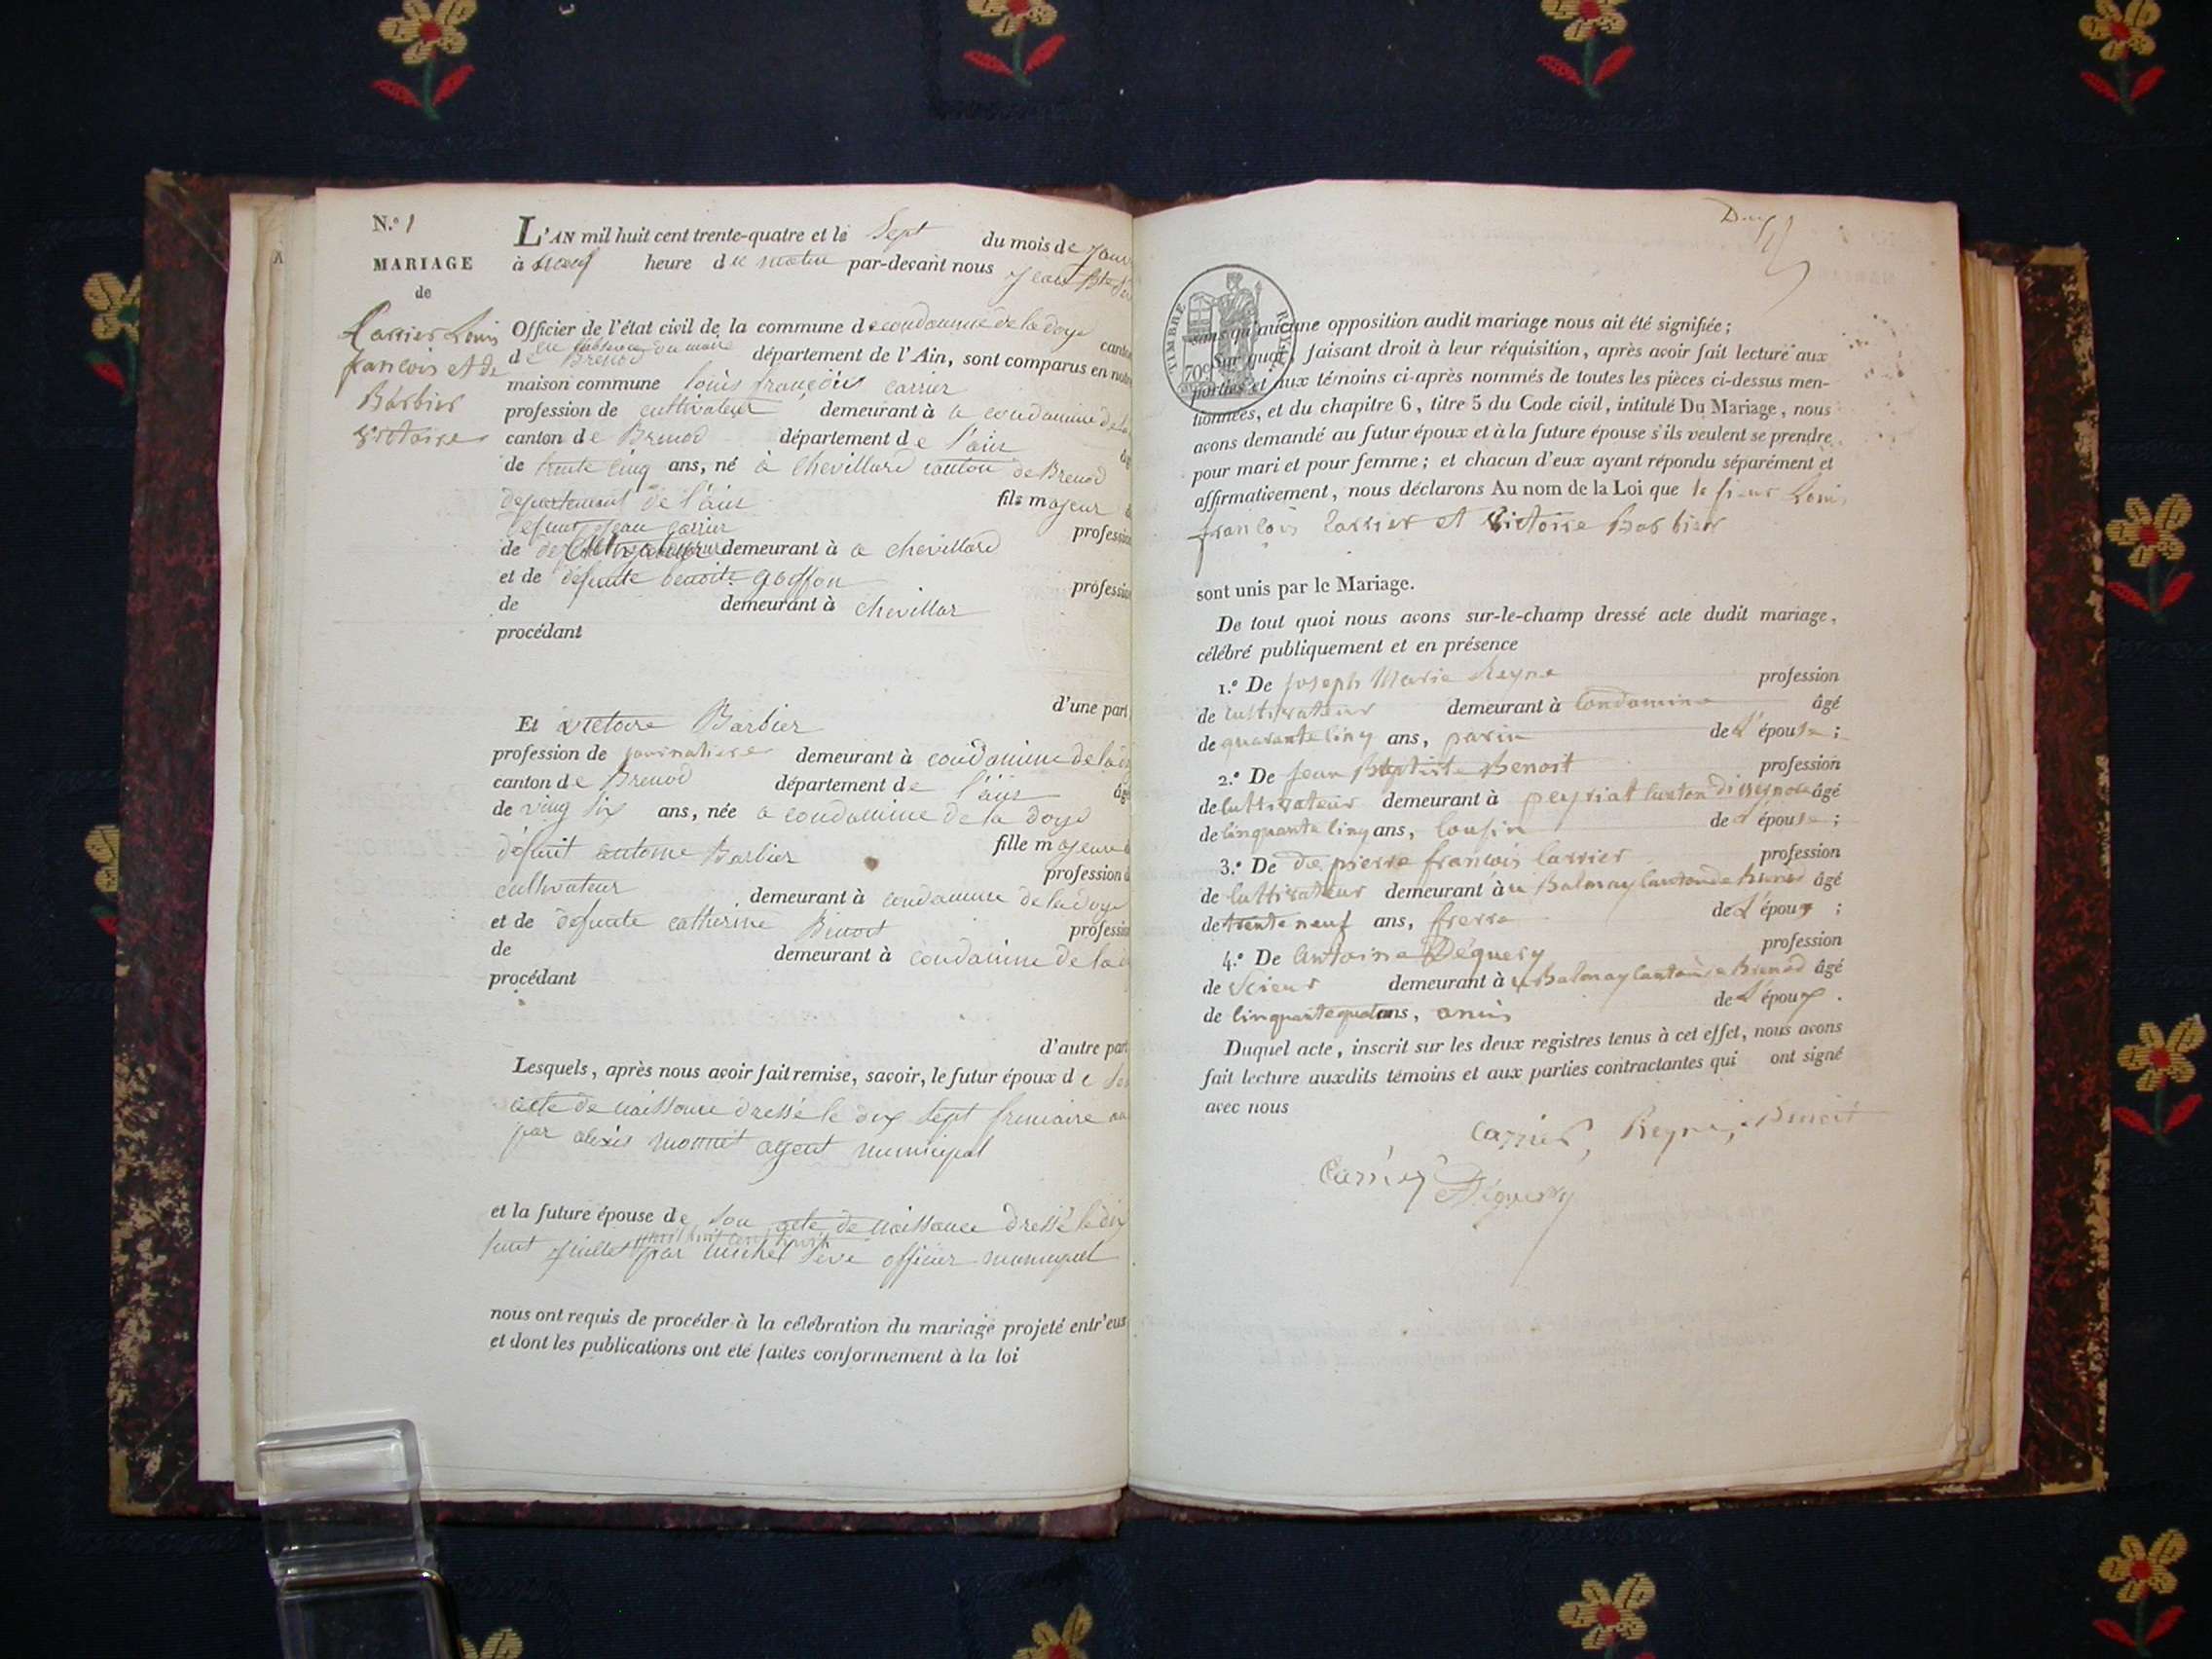 N.º 1
MARIAGE
de
Carrier Louis
francois et de
Barbier
Victoire
L'AN mil huit cent trente-quatre et le Sept du mois de Janv
à neuf heure du matin par-devant nous Jean Bte
Officier de l'état civil de la commune de condamine de la doye canton
en absence du maire
de Brenod département de l'Ain, sont comparus en notre
maison commune louis françois carrier
profession de cultivateur demeurant à a condamine de la
canton de Brenod département de l'ain âgé
de trente cinq ans, né à chevillard canton de Brenod
departement de l'ain fils majeur d
defunt jean carrier profession
de demeurant à a chevillard
et de défunte benoite goffon profession
de demeurant à chevillar
procédant
d'une part
Et victoire Barbier
profession de journaliere demeurant à condamine de la d
canton de Brenod département de l'ain âgé
de ving six ans, née a condamine de la doye
défunt antoine Barbier fille majeure d
cultivateur profession d
demeurant à condamine de la doye
et de defunte catherine Benoit profession
de demeurant à condamine de la d
procédant
d'autre part
Lesquels, après nous avoir fait remise, savoir, le futur époux de son
acte de naissance dressé le dix sept frimaire an
par alexis monnet agent municipal
et la future épouse de son acte de naissance dressé le dix
huit juillet mil huit cent huit par michel Sève officier municipal
nous ont requis de procéder à la célébration du mariage projeté entr'eux
et dont les publications ont été faites conformement à la loi
TIMBRE ROYAL
70c
sans qu'aucune opposition audit mariage nous ait été signifiée;
Sur quoi, faisant droit à leur réquisition, après avoir fait lecture aux
parties et aux témoins ci-après nommés de toutes les pièces ci-dessus men-
tionnées, et du chapitre 6, titre 5 du Code civil, intitulé Du Mariage, nous
avons demandé au futur époux et à la future épouse s'ils veulent se prendre
pour mari et pour femme; et chacun d'eux ayant répondu séparément et
affirmativement, nous déclarons Au nom de la Loi que le sieur Louis
françois Carrier et Victoire Barbier
sont unis par le Mariage.
De tout quoi nous avons sur-le-champ dressé acte dudit mariage,
célébré publiquement et en présence
1.º De Joseph Marie Reyne profession
de Cultivateur demeurant à Condamine âgé
de quarante cinq ans, parin de L'épouse;
2.º De Jean Baptiste Benoit profession
de Cultivateur demeurant à peyriat Canton d'izernore âgé
de Cinquante cinq ans, Cousin de L'épouse;
3.º De de pierre françois Carrier profession
de Cultivateur demeurant à a Balmay Canton de Brenod âgé
de trente neuf ans, frerre de L'époux;
4.º De Antoine Déguery profession
de Scieur demeurant à a Balmay Canton de Brenod âgé
de Cinquante quatre ans, amis de L'époux.
Duquel acte, inscrit sur les deux registres tenus à cet effet, nous avons
fait lecture auxdits témoins et aux parties contractantes qui ont signé
avec nous
Carrier, Reyne, Benoit
Carrier Déguery